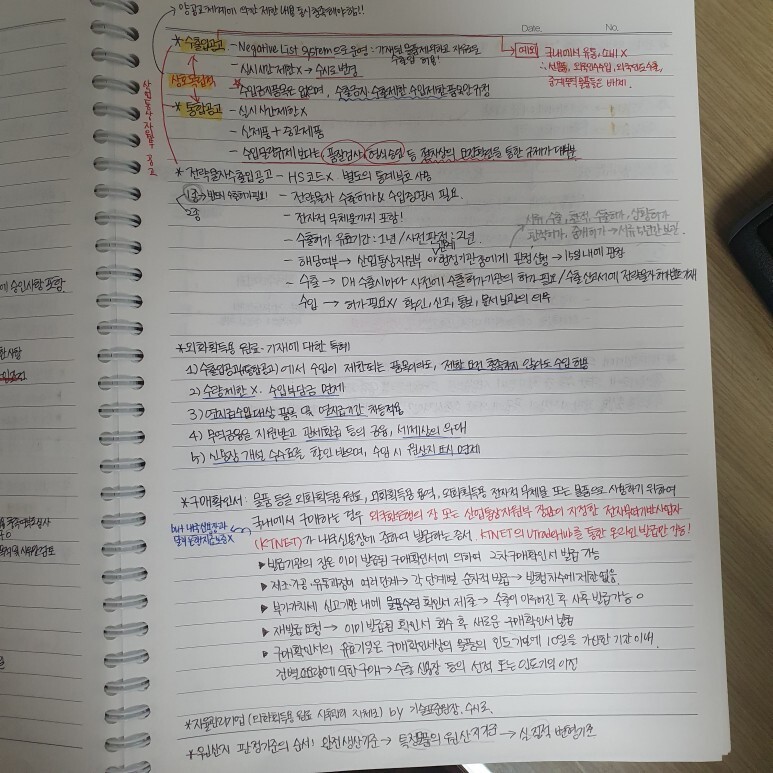 Date. No.
* 수출입공고 - Negative List system으로 운영 : 기재된 물품제외하고 자유롭게 수출입 허용!
예외 국내에서 유통, 소비 X
∴ 선용품, 외국인수수입, 외국인도수출, 중계무역 물품등은 배제.
- 실시시한 제한 X → 수시로 변경
상호 독립적
* 수입금지품목은 없으며, 수출금지 수출제한 수입제한 품목만 규정
* 통합공고 - 실시시한제한 X
- 신제품 + 중고제품
산업통상자원부 공고
- 수입물량규제 보다는 품질검사, 형식승인 등 절차상의 요건확인을 통한 규제가 대부분
* 전략물자수출입공고 - HS코드 X 별도의 통제번호 사용
1종 → 반드시 수출허가필요!
2종
- 전략물자 수출허가 & 수입증명서 필요.
- 전자적 무체물까지 포함!
- 수출허가 유효기간 : 1년 / 사전판정 : 2년.
- 해당여부 → 산업통상자원부 or 관계행정기관 장에게 판정신청 → 15일 내에 판정
- 수출 → 매 수출시마다 사전에 수출허가기관의 허가 필요 / 수출신고서에 전략물자 허가번호 기재
수입 → 허가 필요 X / 확인, 신고, 통보, 문서보관의 의무
* 외화획득용 원료·기재에 대한 특혜
1) 수출입공고(통합공고)에서 수입이 제한되는 품목이라도, 제한 요건 충족하지 않아도 수입 허용
2) 수량제한 X. 수입부담금 면제
3) 연지급수입대상 품목 및 연지급기간 차등적용
4) 무역금융을 지원받고 관세환급 등의 금융, 세제상의 우대
5) 신용장 개설 수수료를 할인 받으며, 수입 시 원산지 표시 면제
* 구매확인서 : 물품 등을 외화획득용 원료, 외화획득용 용역, 외화획득용 전자적 무체물 또는 물품으로 사용하기 위하여
국내에서 구매하는 경우 외국환은행의 장 또는 산업통상자원부 장관이 지정한 전자무역기반사업자
but 내국신용장과 달리 은행지급보증 X
(KTNET)가 내국신용장에 준하여 발급하는 증서. KTNET의 UTradeHub를 통한 온라인 발급만 가능!
▶ 발급기관의 장은 이미 발급된 구매확인서에 의하여 2차구매확인서 발급 가능
▶ 제조·가공·유통과정이 여러 단계 → 각 단계별 순차적 발급 → 발행차수에 제한없음.
▶ 부가가치세 신고기한 내에 물품수령 확인서 제출 → 수출이 이루어진 후 사후 발급가능 O
▶ 재발급 요청 → 이미 발급된 확인서 회수 후 새로운 구매확인서 발급
▶ 구매확인서의 유효기일은 구매확인서상의 물품의 인도기일에 10일을 가산한 기간 이내.
→ 수출 신용장 등의 선적 또는 인도기일 이전
* 자율관리기업 (외화획득용 원료 사후관리 자체로) by 기술표준원장. 수시로.
* 원산지 판정기준의 순서 : 완전생산기준 → 특정물품의 원산지기준 → 실질적 변형기준